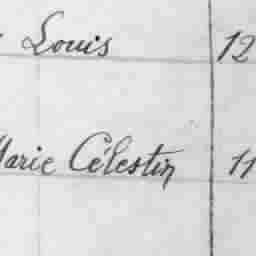 Louis 12
Marie Célestin 11